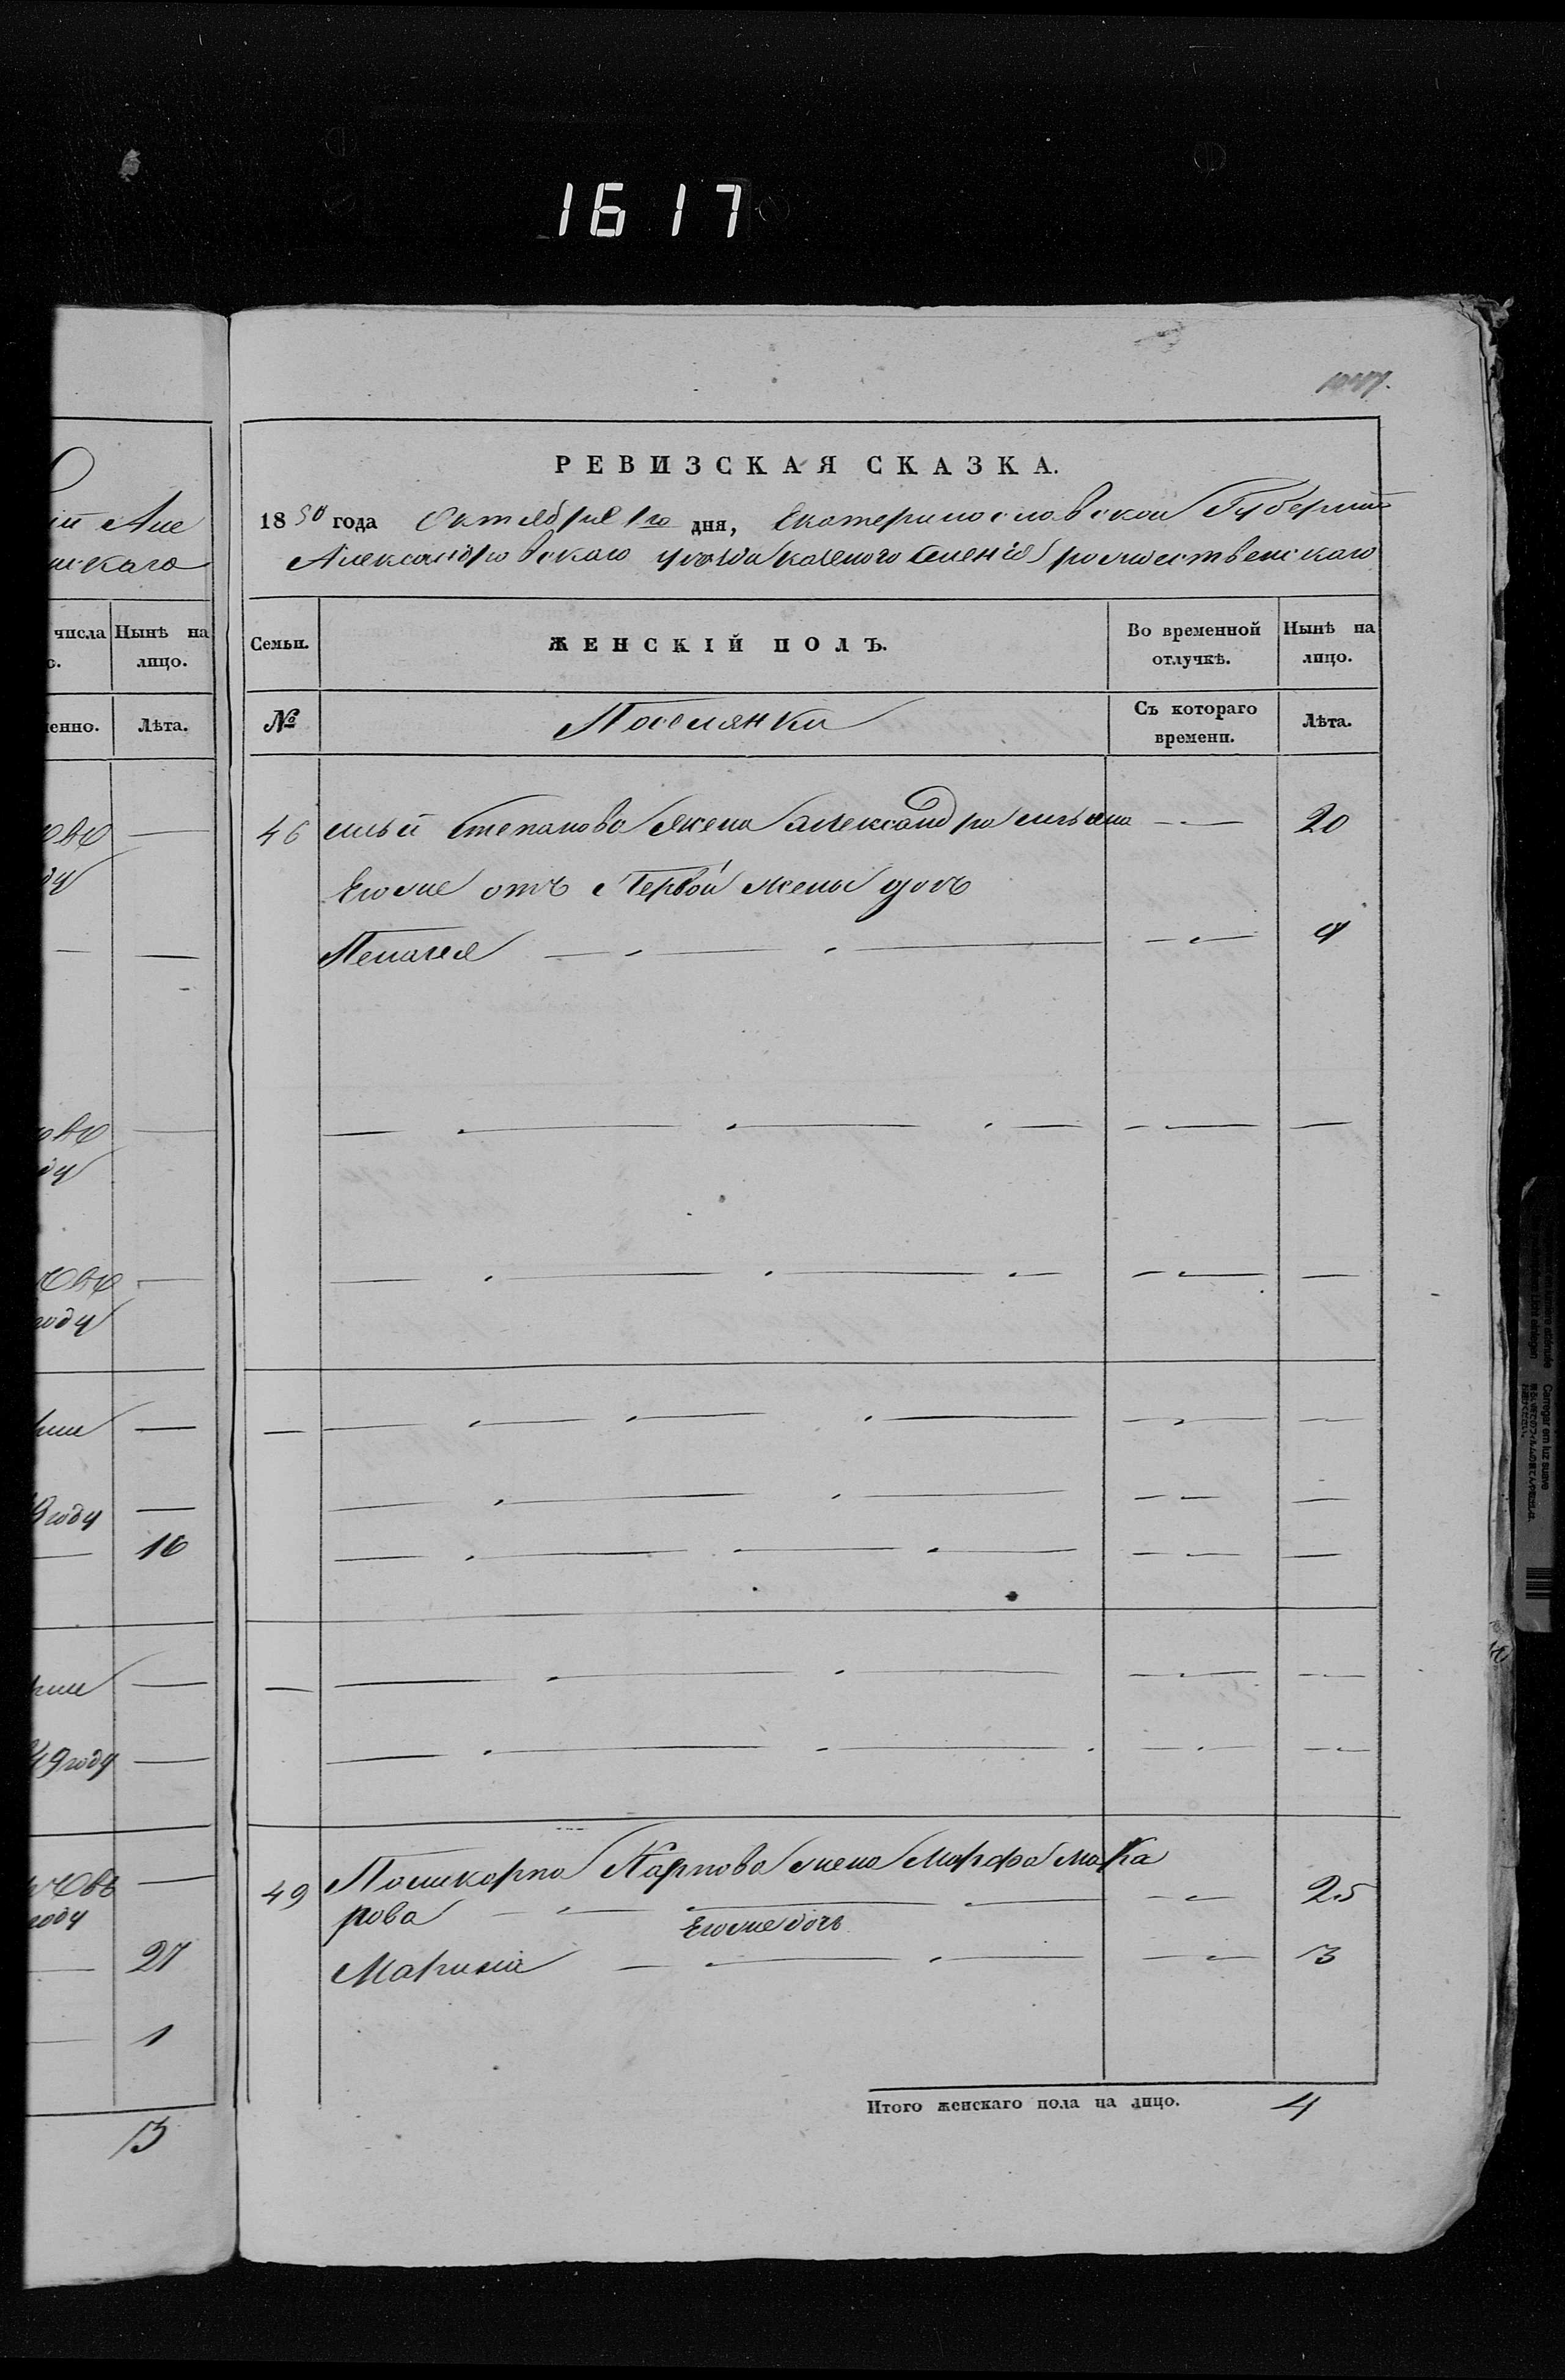 1617
РЕВИЗСКАЯ СКАЗКА.
1850 года Октября 1го дня, Екатеринославской Губернии
Александровскаго уезда казеного селения рождественскаго
Семьи.
ЖЕНСКІЙ ПОЛЪ.
Во временной отлучкѣ.
Нынѣ на лицо.
№
Поселянки
Съ котораго времени.
Лѣта.
46 Степанова жена александра 20
Егоже отъ Первой жены дочь
Пелагея 9
49 Поликарпа Карпова жена Марфа мака
рова 25
Егоже дочь
Марина 3
Итого женскаго пола на лицо. 4
числа
Нынѣ на
лицо.
Лѣта.
году
9 году
16
49 году
году
27
1
3